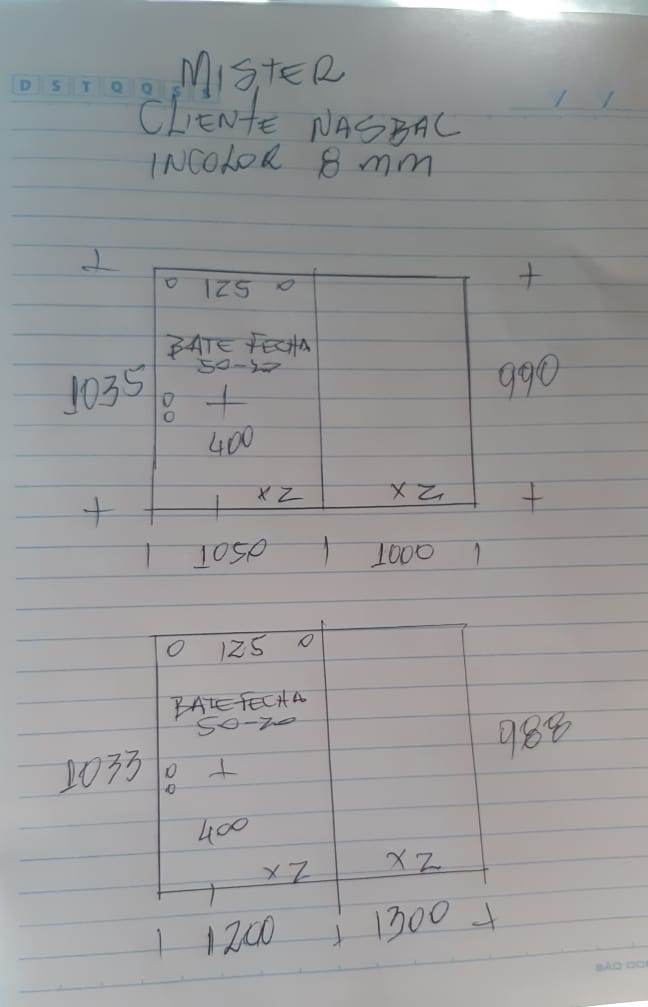 D S T Q Q S S
MISTER
CLIENTE NASBAC
INCOLOR 8 mm
125
BATE FECHA
50-20
1035
990
400
x2 x2
1050 1000
125
BATE FECHA
50-20
1033
988
400
x2 x2
1200 1300
SÃO DO